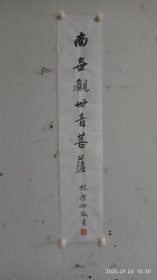 南无觀世音菩薩
2025.09.24 10:30